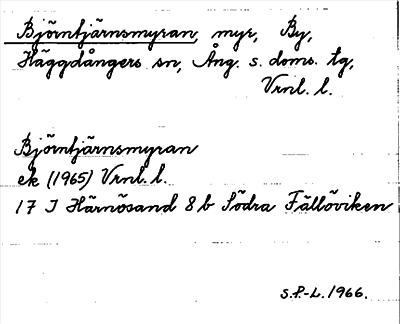 Björntjärnsmyran, myr, By,
Häggdångers sn, Ång. s. doms. tg,
Vrnl. l.
Björntjärnsmyran
ek (1965) Vrnl. l.
17 I Härnösand 8 b Södra Fällöviken
S.P.-L. 1966.